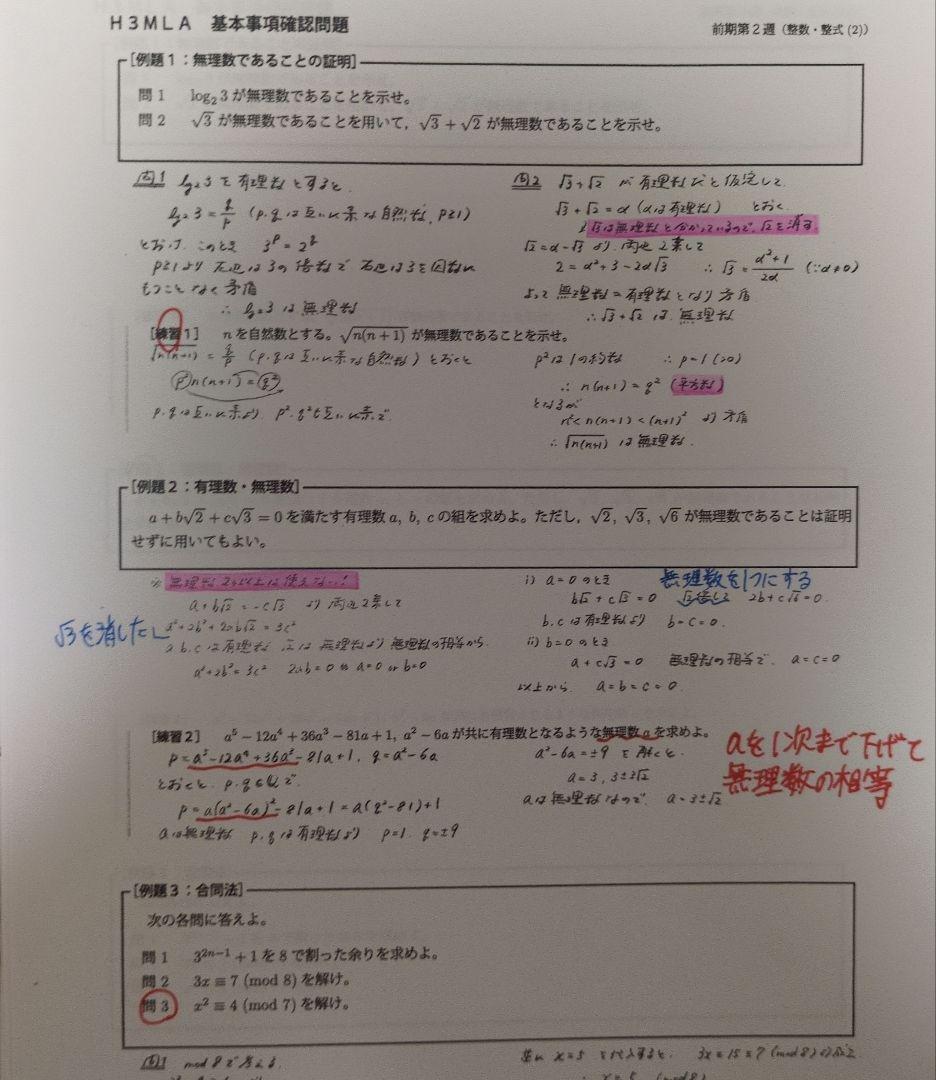 H3MLA 基本事項確認問題
前期第2週（整数・整式(2)）
[例題1：無理数であることの証明]
問1 log₂3が無理数であることを示せ。
問2 √3が無理数であることを用いて，√3+√2が無理数であることを示せ。
問1 log₂3を有理数とすると、
log₂3 = q/p (p,qは互いに素な自然数, p≧1)
とおけ、このとき 3^p = 2^q
p≧1より 左辺は3の倍数で 右辺は3を因数に
もつことなく矛盾
∴ log₂3 は無理数
問2 √3+√2 が有理数だと仮定して
√3+√2=α (αは有理数) とおく
√3は無理数と分かっているので、√2を消す
√2=α-√3 より 両辺2乗して
2=α²+3-2α√3 ∴ √3=(α²+1)/2α (∵α≠0)
よって 無理数=有理数となり矛盾
∴√3+√2は 無理数
[練習1] nを自然数とする。√n(n+1)が無理数であることを示せ。
√n(n+1) = q/p (p,qは互いに素な自然数) とおくと
p²n(n+1)=q²
p,qは互いに素より p²,q²も互いに素で
p²は1の約数 ∴ p=1 (>0)
∴ n(n+1)=q² (平方数)
となるが
n²<n(n+1)<(n+1)² より矛盾
∴ √n(n+1) は無理数
[例題2：有理数・無理数]
a+b√2+c√3=0を満たす有理数a, b, cの組を求めよ。ただし，√2, √3, √6が無理数であることは証明
せずに用いてもよい。
※ 無理数2つ以上は使えない！
a+b√2=-c√3 より両辺2乗して
√3を消したい
a²+2b²+2ab√2=3c²
a,b,cは有理数 √2は無理数より 無理数の相等から
a²+2b²=3c² 2ab=0 ⇔ a=0 or b=0
i) a=0のとき
無理数を1つにする
b√2+c√3=0 √2倍して 2b+c√6=0
b,cは有理数より b=c=0.
ii) b=0のとき
a+c√3=0 無理数の相等で、a=c=0
以上から a=b=c=0
[練習2] a⁵−12a⁴+36a³−81a+1, a²−6aが共に有理数となるような無理数aを求めよ。
p=a⁵-12a⁴+36a³-81a+1, q=a²-6a
とおくと p,q∈Qで
p=a(a²-6a)²-81a+1=a(q²-81)+1
aは無理数 p,qは有理数より p=1, q=±9
a²-6a=±9 を解くと
a=3, 3±3√2
aは無理数なので
aを1次まで下げて
無理数の相等
[例題3：合同法]
次の各問に答えよ。
問1 3²ⁿ⁻¹+1を8で割った余りを求めよ。
問2 3x≡7 (mod 8)を解け。
問3 x²≡4 (mod 7)を解け。
問1 mod 8で考える
逆に x=5 を代入すると、3x=15≡7 (mod 8)
x≡5 (mod 8)